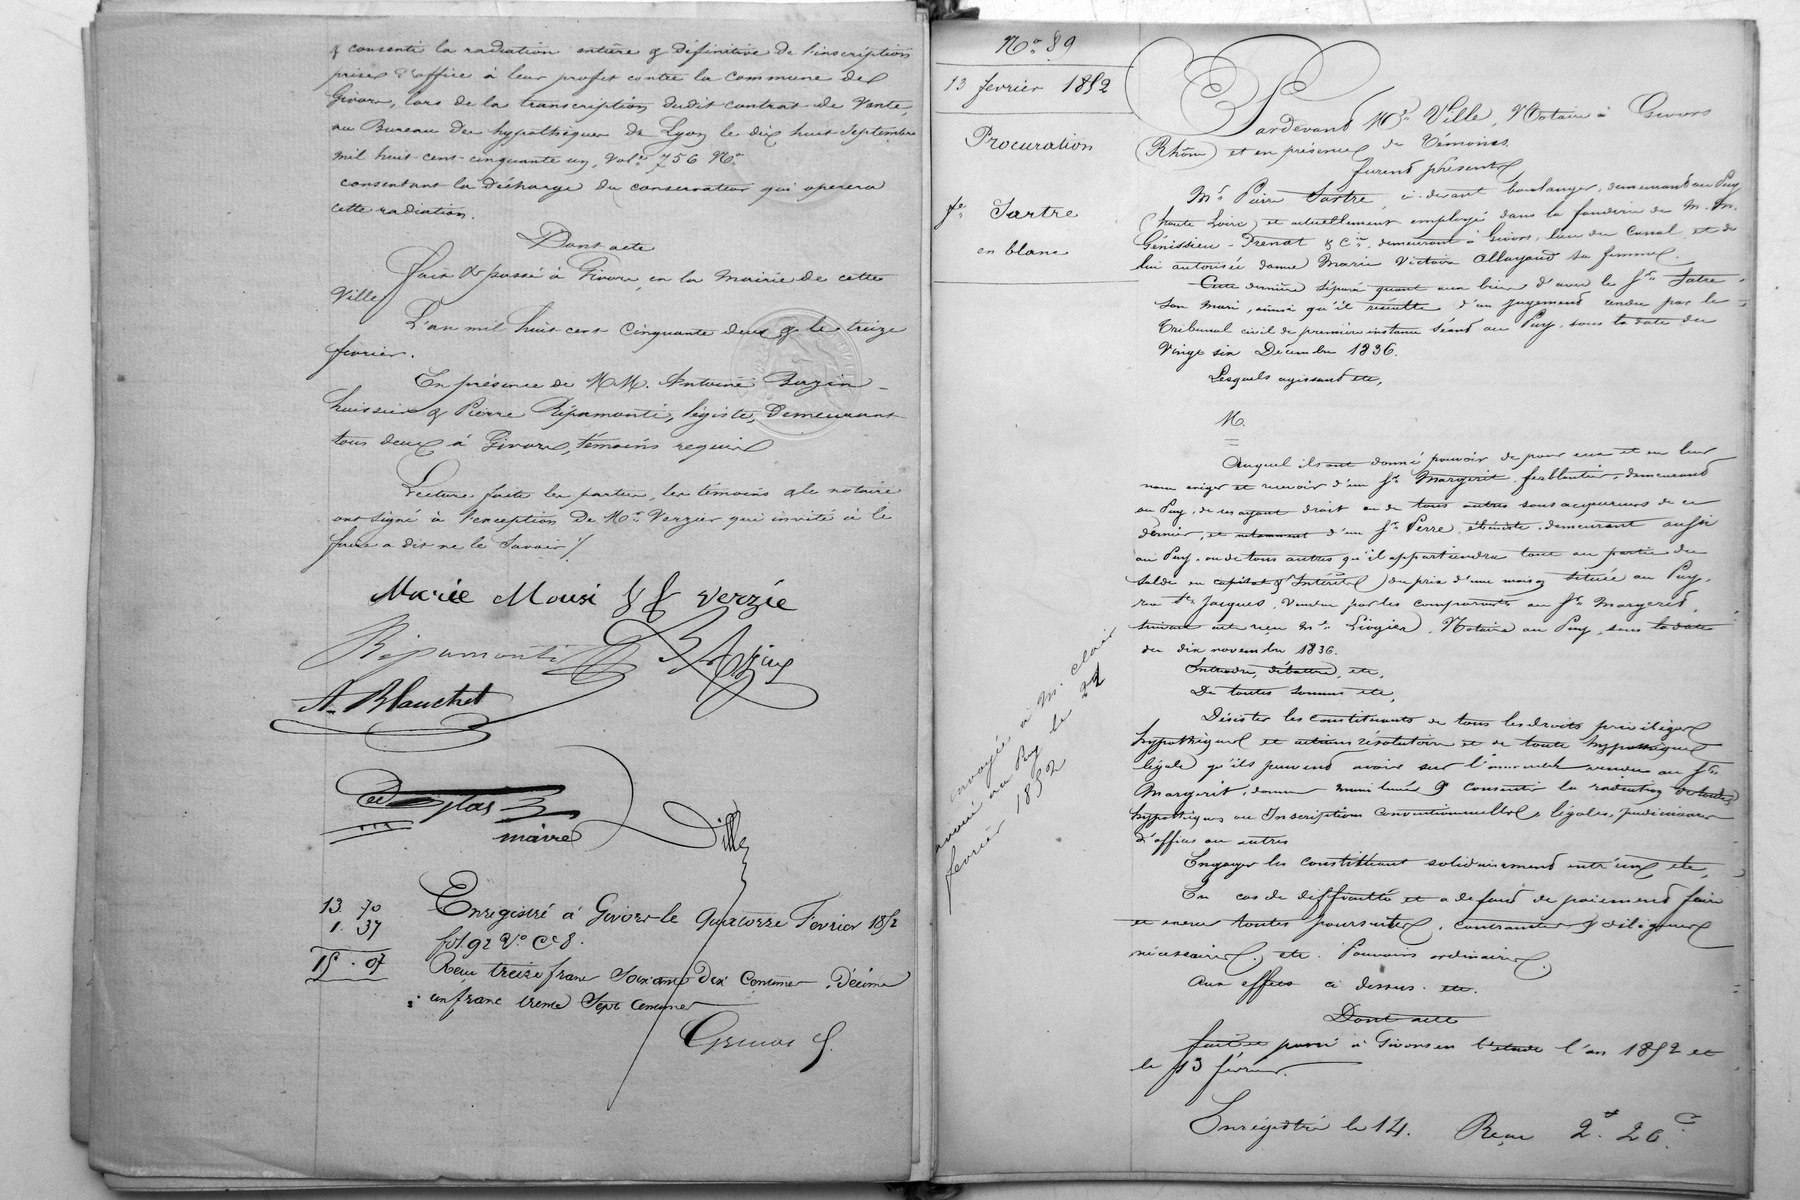 & consenti la radiation entière & définitive de l'inscription
prise d'office à leur profit contre la commune de
Givors, lors de la transcription dudit contrat de vente,
au Bureau des hypothèques de Lyon le dix huit Septembre
mil huit cent cinquante un, vol. 756 No.
consentant la décharge du conservateur qui opérera
cette radiation.
Dont acte
Fait & passé à Givors, en la Mairie de cette
Ville
L'an mil huit cent cinquante deux & le treize
février.
En présence de MM. Antoine Bazin
huissier & Pierre Ripamonti, légiste, demeurant
tous deux à Givors, témoins requis
Lecture faite les parties, les témoins & le notaire
ont signé à l'exception de Mr. Verzier qui invité à le
faire a dit ne le Savoir ./.
Marie Mousi verzié
Ripamonti Bazin
A. Blanchet
maire
Ville
13 70
1. 37
15 . 07
Enregistré à Givors le quatorze Février 1852
fol 92 Vo Ce 8.
Reçu treize francs Soixante Dix Centimes, Décime
un franc trente Sept centimes
No. 89
13 fevrier 1852
Procuration
pr. Sartre
en blanc
envoyée à M. clair
avoué au Puy le 22
fevrier 1852
Pardevant Me. Ville, Notaire à Givors
(Rhône) et en présence de Témoins.
furent présents
Mr. Pierre Sartre, ci-devant boulanger, demeurant au Puy
(haute Loire) et actuellement employé dans la fonderie de M.M.
Génissieu-Frenat & Cie, demeurant à Givors, lieu du Canal, et de
lui autorisée dame Marie Victoire Allayaud sa femme.
Cette dernière séparée quant aux biens d'avec le Sr. Satre
son mari, ainsi qu'il résulte d'un jugement rendu par le
Tribunal civil de première instance séant au Puy, sous la date du
vingt six Décembre 1836.
Lesquels agissant etc,
M.
Auquel ils ont donné pouvoir de pour eux et en leur
nom exiger et recevoir d'un Sr. Margerit, ferblantier, demeurant
au Puy, de ses ayant droit ou de tous autres sous acquéreurs de ce
dernier, et notamment d'un Sr. Perre, ébéniste, demeurant aussi
au Puy, ou de tous autres qu'il appartiendra tout ou partie du
solde en capital & Intérêts du prix d'une maison située au Puy,
rue St. Jacques, vendue par les comparants au Sr. Margerit,
suivant acte reçu Me. Liogier, Notaire au Puy, sous la date
du dix novembre 1836.
Entendre, débattre, etc,
De toutes sommes etc,
Désister les constituants de tous les droits privilèges
hypothèques et actions résolutoires et de toute hypothèque
légale qu'ils peuvent avoir sur l'immeuble vendu au Sr.
Margerit, donner main levée & consentir la radiation de toutes
hypothèques ou Inscriptions conventionnelles, légales, judiciaires
d'office ou autres
Engager les constituant solidairement entr'eux etc,
En cas de difficulté et a défaut de paiement faire
et exercer toutes poursuites, contraintes & diligences
nécessaires, etc. Pouvoirs ordinaires,
Aux effets ci dessus. etc.
Dont acte
fait et passé à Givors en l'étude l'an 1852 et
le 13 février.
Enregistré le 14. Reçu 2f. 20c.